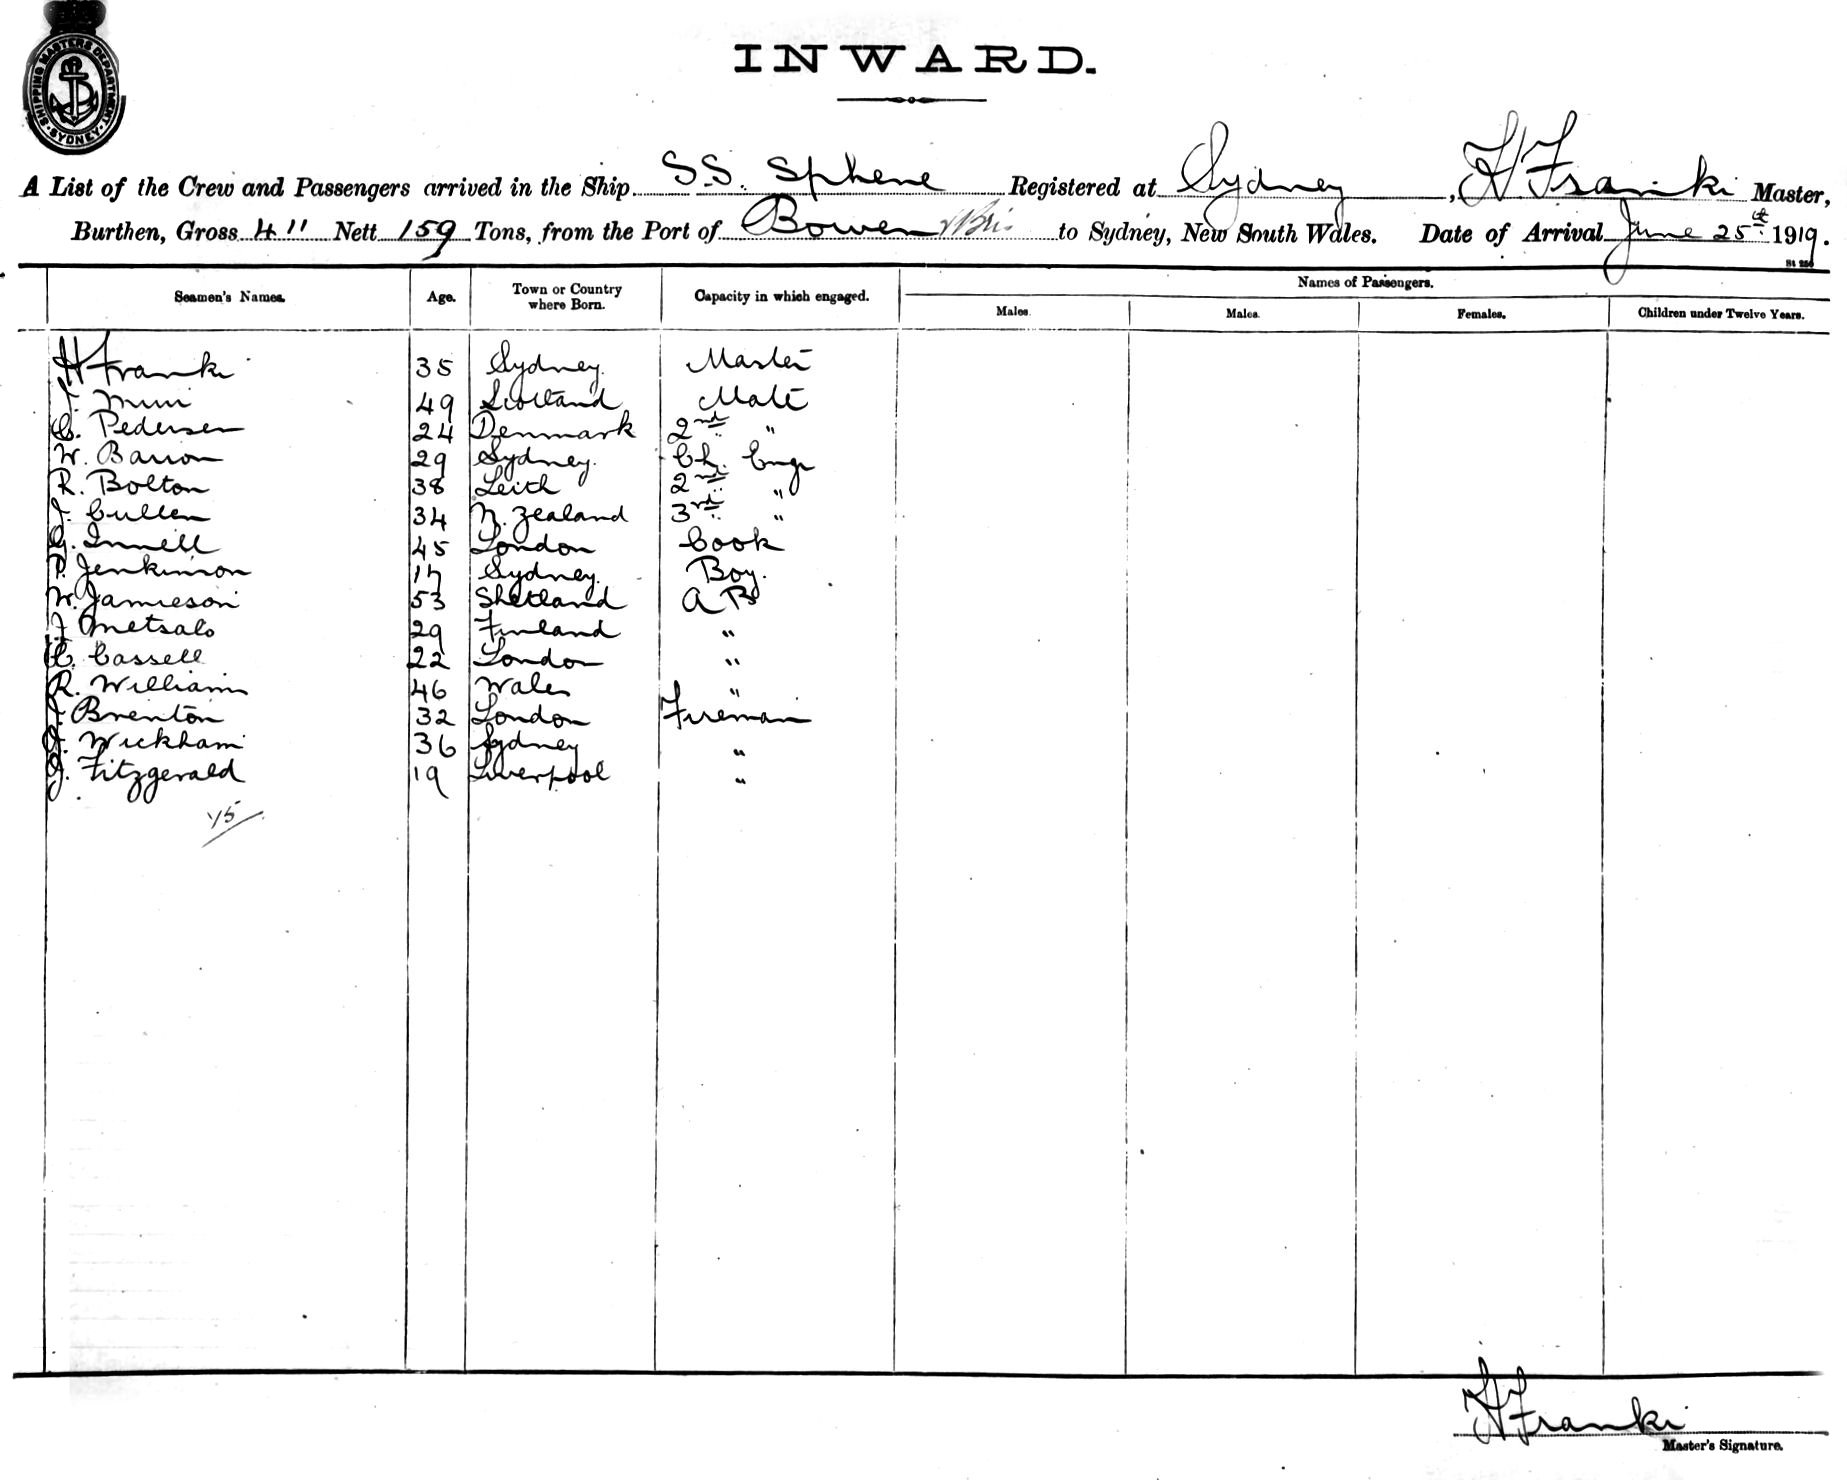 SHIPPING MASTERS DEPARTMENT. SYDNEY
INWARD.
A List of the Crew and Passengers arrived in the Ship S.S. Sphene Registered at Sydney, H Franki Master,
Burthen, Gross 411 Nett 159 Tons, from the Port of Bowen to Sydney, New South Wales. Date of Arrival June 25th 1919.
Names of Passengers.
Seamen's Names. Age. Town or Country where Born. Capacity in which engaged. Males. Males. Females. Children under Twelve Years.
H Franki 35 Sydney. Master
J. Muir 49 Scotland Mate
C. Pedersen 24 Denmark 2nd "
W. Barron 29 Sydney. Ch. Engr
R. Bolton 38 Leith 2nd "
J. Cullen 34 N. Zealand 3rd "
G. Innell 45 London Cook
P. Jenkinson 17 Sydney. Boy.
W. Jamieson 53 Shetland A B
J Metsalo 29 Finland "
C. Cassell 22 London "
R. Williams 46 Wales "
J. Brenton 32 London Fireman
J. Wickham 36 Sydney "
J. Fitzgerald 19 Liverpool "
15
H Franki
Master's Signature.